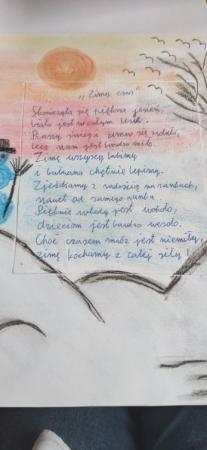 „Zimy czar"
Skończyła się piękna jesień,
biało jest w całym lesie.
Prószy śnieg i zimno się zdało,
lecz nam jest bardzo miło.
Zimę wszyscy lubimy
i bałwana chętnie lepimy.
Zjeżdżamy z radością na sankach,
nawet od samego ranka.
Pięknie wtedy jest wokoło,
dzieciom jest bardzo wesoło.
Choć czasem mróz jest niemiły,
zimę kochamy z całej siły!